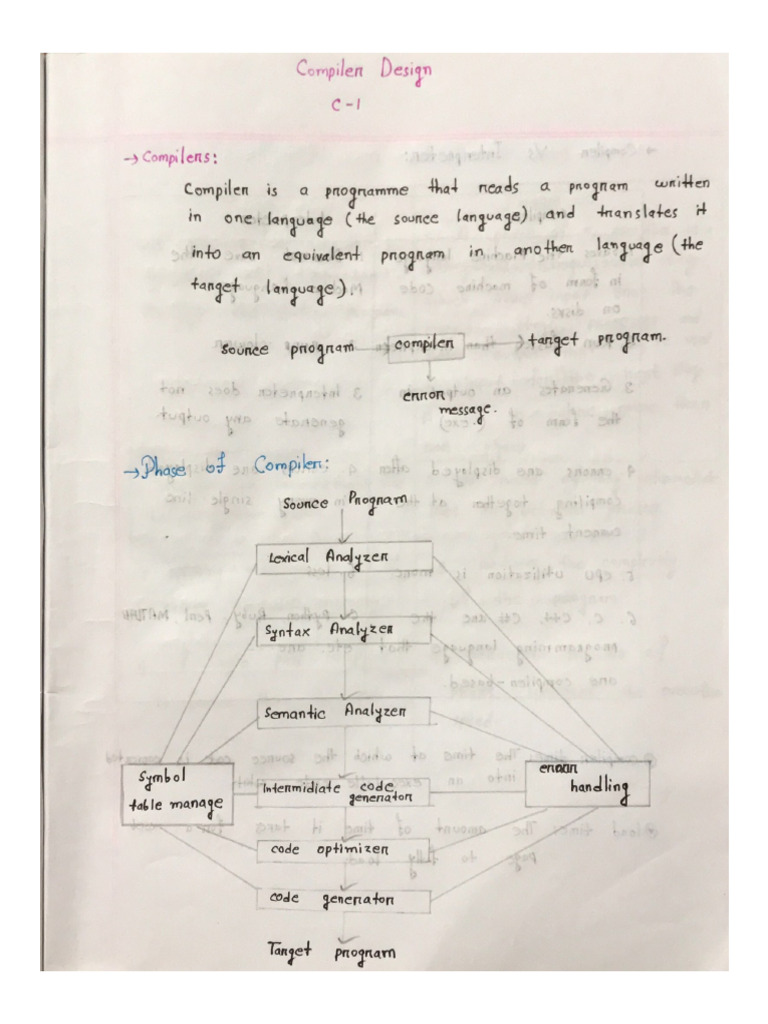 Compiler Design
C-1
→ Compilers:
Compiler is a programme that reads a program written
in one language (the source language) and translates it
into an equivalent program in another language (the
target language).
source program → compiler → target program.
error
message.
→ Phase of Compiler:
Source Program
Lexical Analyzer
Syntax Analyzer
Semantic Analyzer
Symbol
table manage
Intermidiate code
generator
error
handling
code optimizer
code generator
Target program